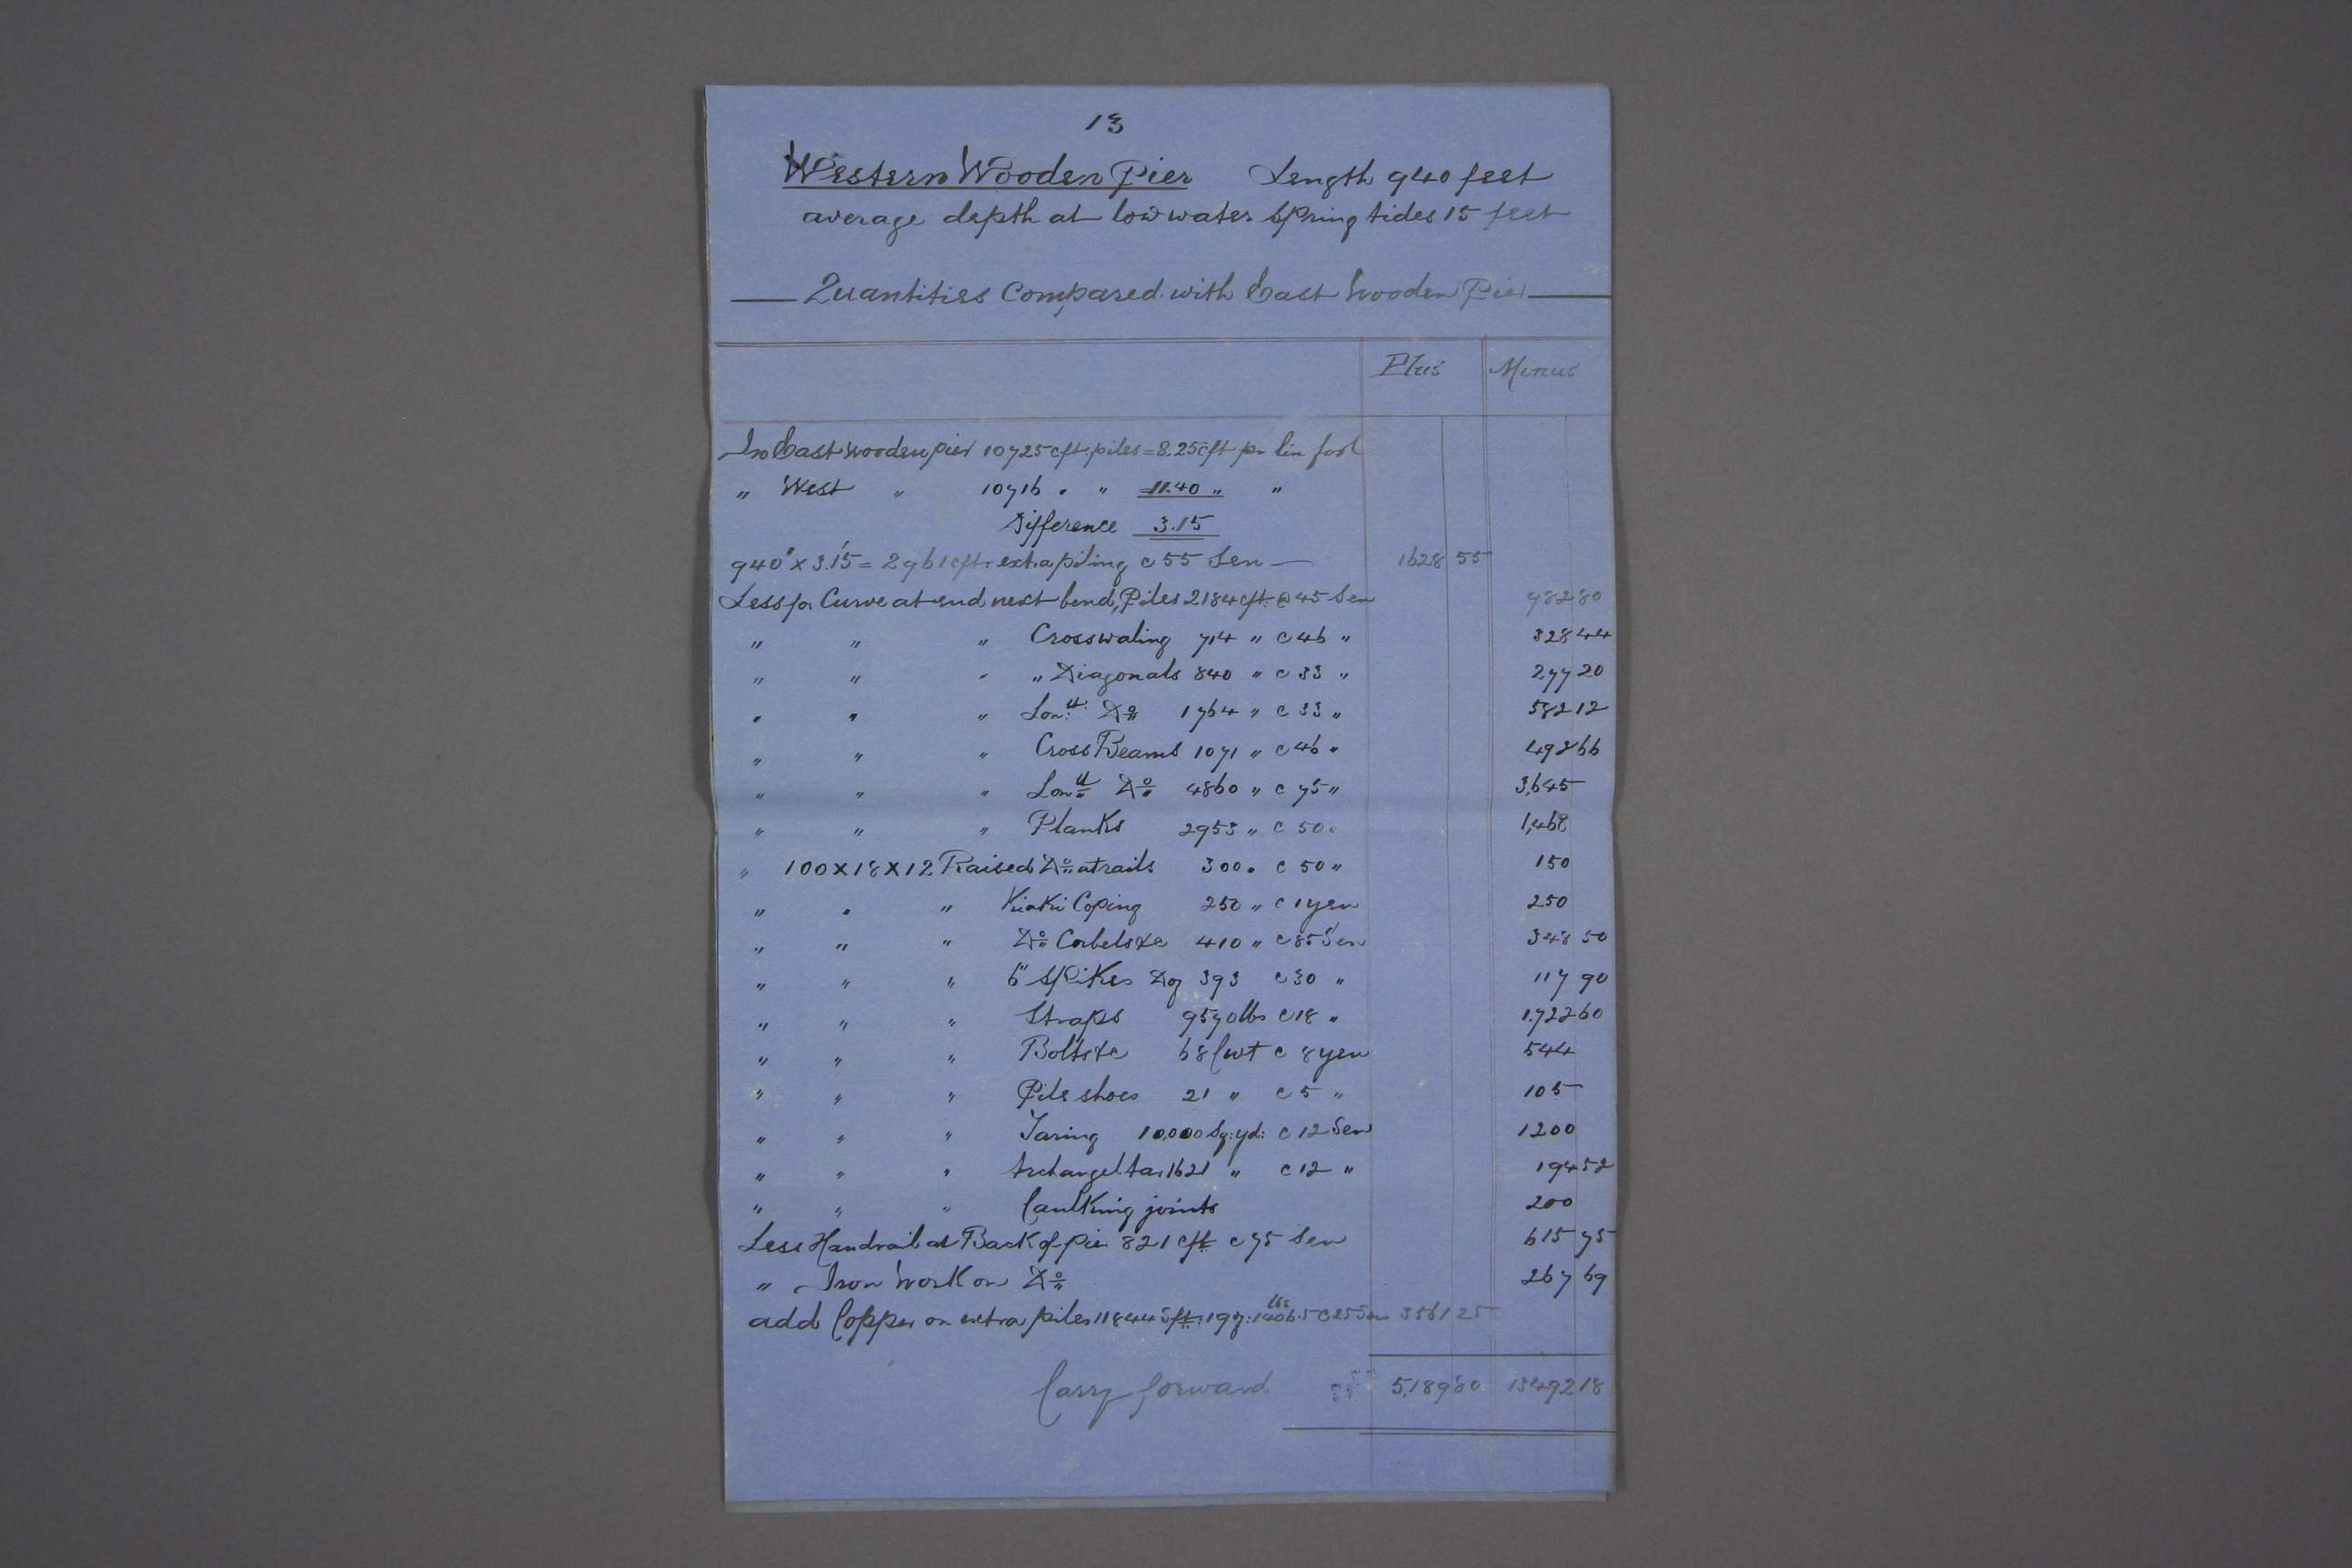 13
Western Wooden Pier Length 940 feet
average depth at low water Spring tides 15 feet
Quantities Compared with East Wooden Pier
Plus Minus
In East wooden pier 10725 cft. piles = 8.25 cft pr lin foot
" West " 10716 " " = 11.40 " "
Difference 3.15
940' x 3.15' = 2961 cft. extra piling @ 55 Sen — 1628 55
Less for Curve at end next bend, Piles 2184 cft. @ 45 Sen 982 80
" " " Crosswaling 714 " @ 46 " 328 44
" " " " Diagonals 840 " @ 33 " 277 20
" " " Lon:ll: Do 1764 " @ 33 " 582 12
" " " Cross Beams 1071 " @ 46 " 492 66
" " " Lonll Do 4860 " @ 75 " 3,645
" " " Planks 2953 " @ 50 " 1,468
" 100 x 18 x 12 Raised Do at rails 300 " @ 50 " 150
" " " Kiaki Coping 250 " @ 1 yen 250
" " " Do Corbels &c 410 " @ 85 Sen 348 50
" " " 6" Spikes Doz 393 @ 30 " 117 90
" " " Straps 9570 lbs @ 18 " 1.722 60
" " " Bolts &c 68 Cwt @ 8 yen 544
" " " Pile shoes 21 " @ 5 " 105
" " " Taring 10,000 Sq: yd: @ 12 Sen 1200
" " " Archangel tar 1621 " @ 12 " 194 52
" " " Caulking joints 200
Less Handrail at Back of pier 821 cft @ 75 Sen 615 75
" Iron Work on Do 267 69
add Copper on extra piles 11844 Sft: 19 oz: 1406.5 lbs @ 25 Sen 3561 25
Carry forward 5,189 80 13492 18